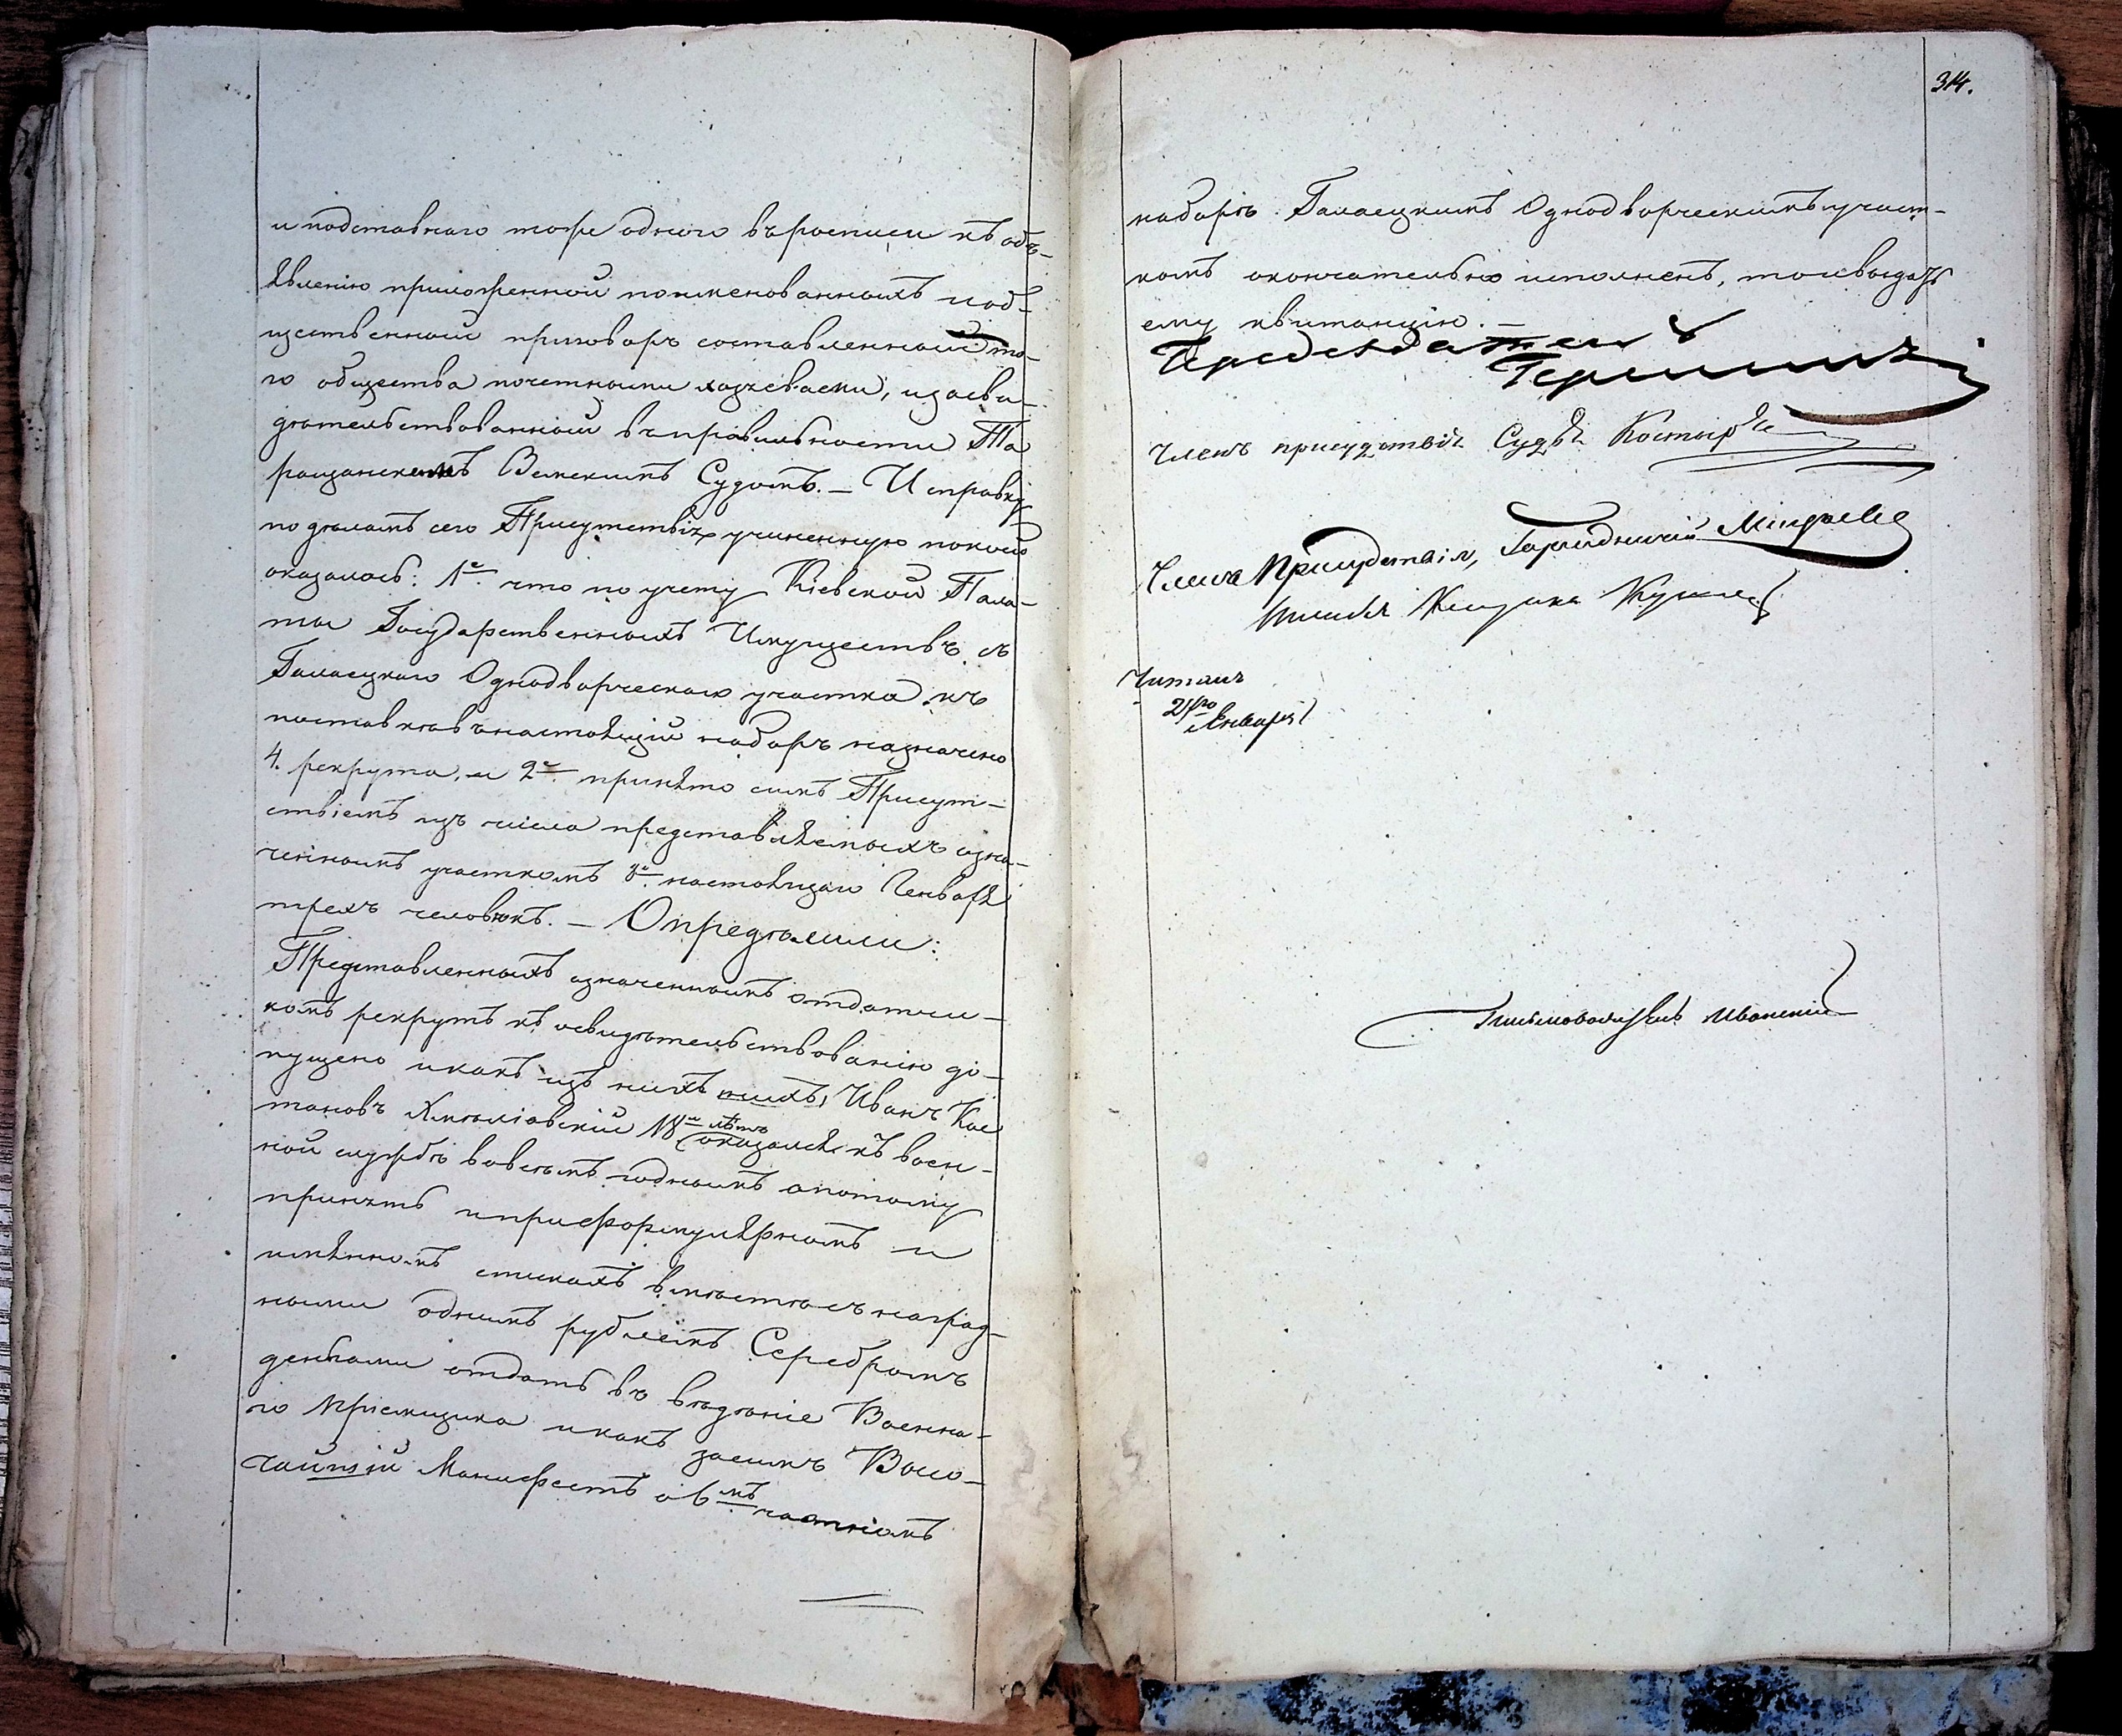 и подставнаго тоже одного въ росписи къ объ-
явленію приложенной поименованныхъ и об-
щественный приговоръ составленный то-
го общества почетными хозяевами, и засви-
дѣтельствованный въ правильности Та
ращанскимъ Земскимъ Судомъ. – И справку
по дѣламъ сего Присутствія учиненную по коей
оказалось: 1е. что по учету Кіевской Пала-
ты Государственныхъ Имуществъ съ
Галаецкаго Однодворческаго участка къ
поставкѣ въ настоящій наборъ назначено
4. рекрута, и 2е. принято симъ Присут-
ствіемъ изъ числа представляемыхъ озна-
ченнымъ участкомъ настоящаго Генваря
трехъ человѣкъ. – Опредѣлили:
Представленныхъ означеннымъ отдатчи-
комъ рекрутъ къ освидѣтельствованію до-
пущено и какъ изъ нихъ нихъ, Иванъ Кас
тановъ 18 лѣтъ
оказался къ воен-
ной службѣ во всемъ годнымъ а потому
принять и при формулярномъ и
имянномъ спискахъ вмѣстѣ съ наград-
ными однимъ рублемъ Серебромъ
деньгами отдать въ вѣдѣніе Военна-
го Пріемщика и какъ засимъ Высо-
чайшій Манифестъ о 6мъ частномъ
314.
наборѣ Галаецкимъ Однодворческимъ участ-
комъ окончательно исполненъ, то и выдать
ему квитанцію. –
Предсѣдатель
Членъ присудствія Судья
Членъ Присудствія, Городничій
Читалъ
Генваря
Письмоводитель Иванскій